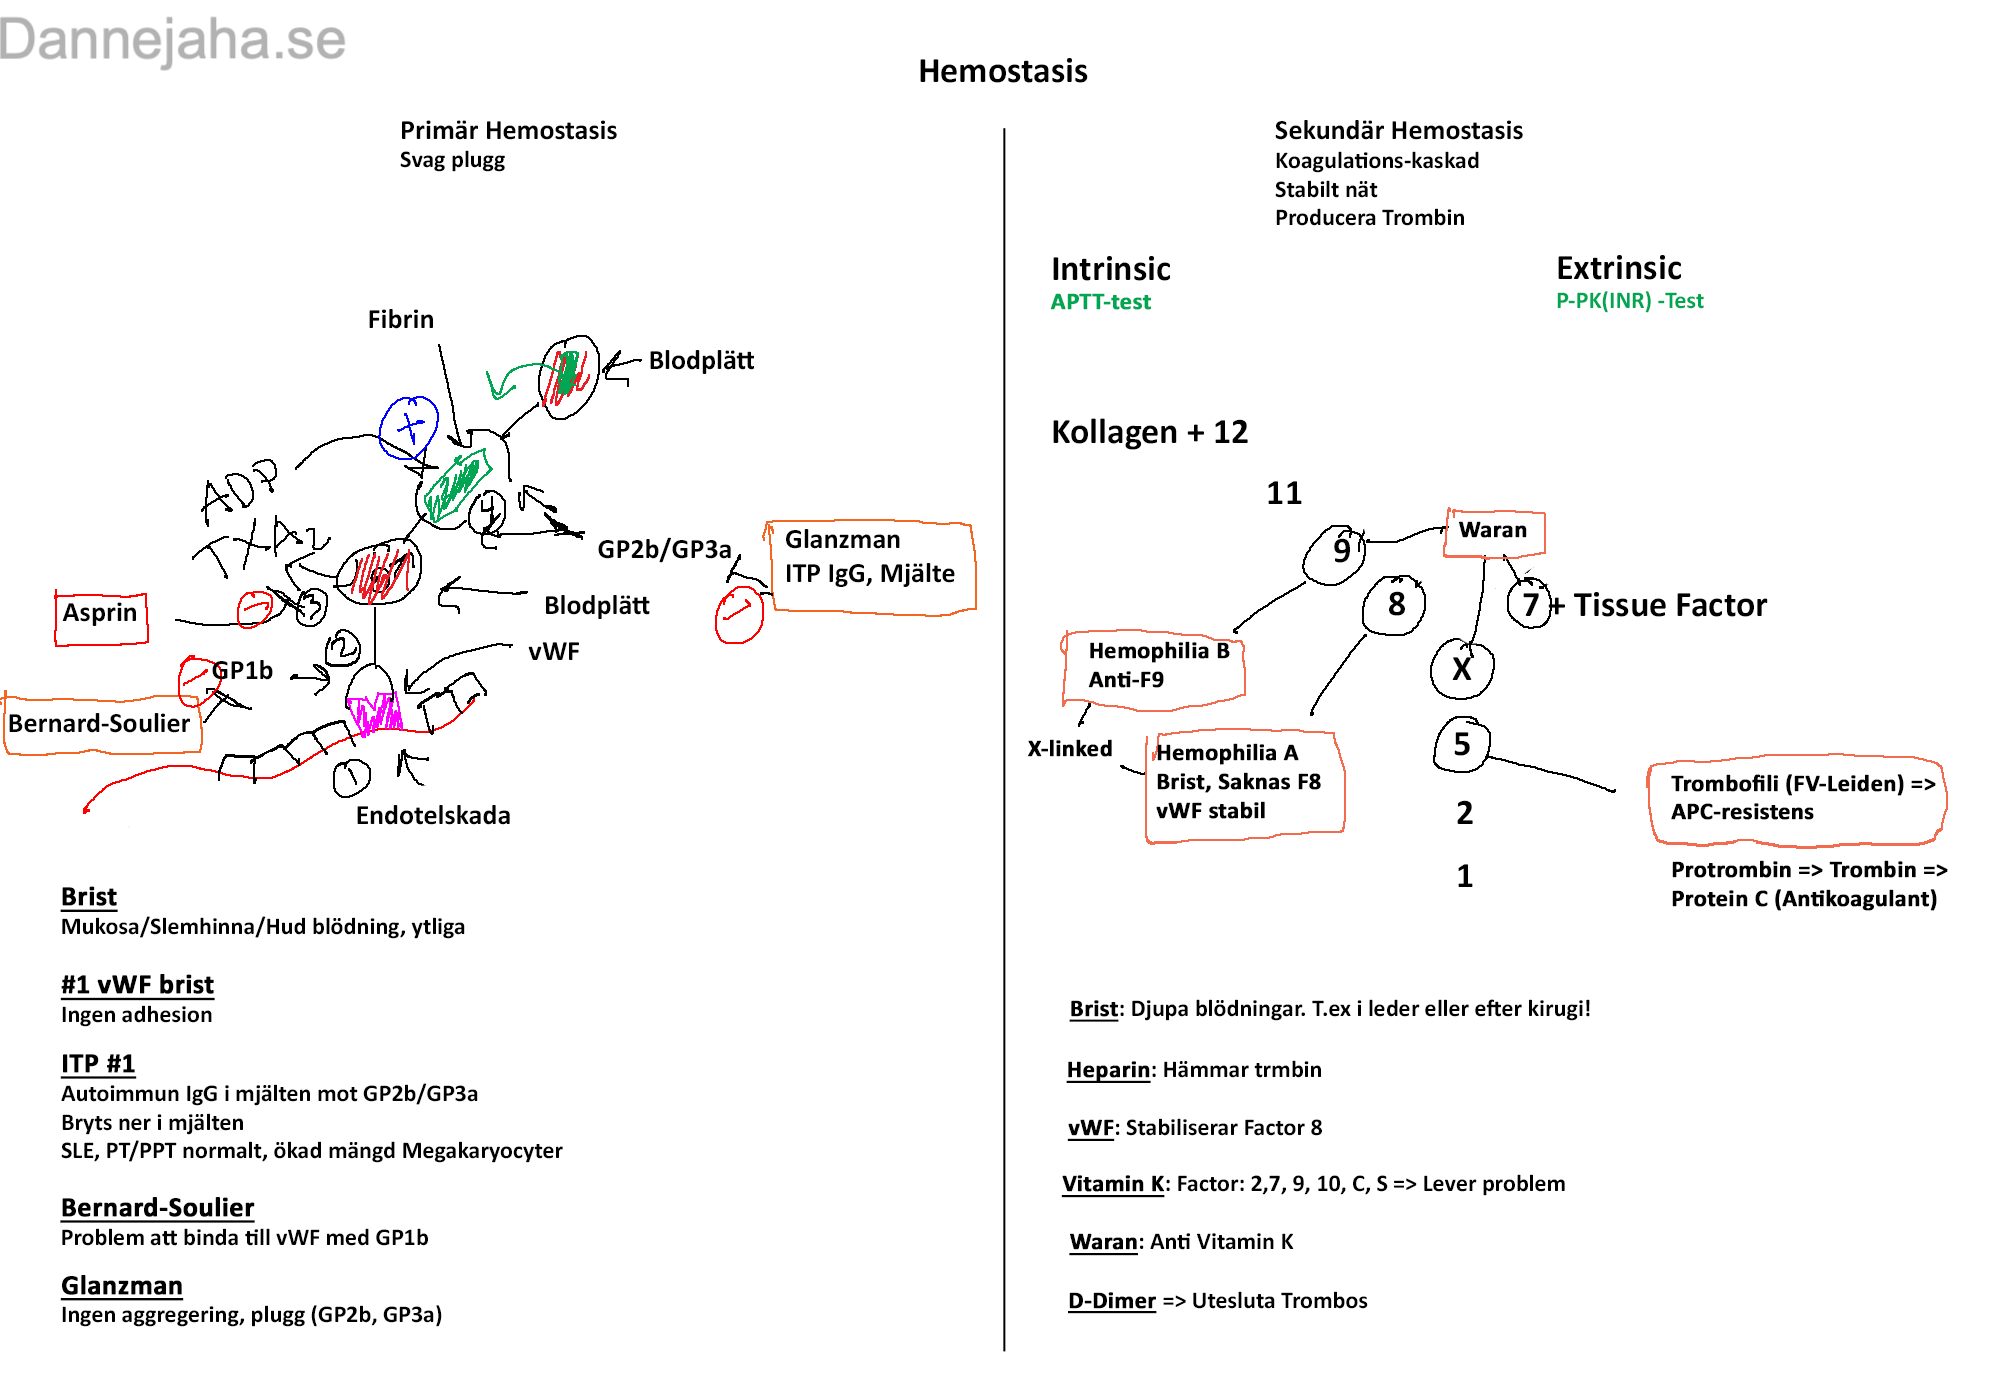 Dannejaha.se
Hemostasis
Primär Hemostasis
Svag plugg
Fibrin
Blodplätt
+
ADP
TXA2
4
GP2b/GP3a
Glanzman
ITP IgG, Mjälte
Asprin
3
Blodplätt
2
GP1b
vWF
Bernard-Soulier
1
Endotelskada
Brist
Mukosa/Slemhinna/Hud blödning, ytliga
#1 vWF brist
Ingen adhesion
ITP #1
Autoimmun IgG i mjälten mot GP2b/GP3a
Bryts ner i mjälten
SLE, PT/PPT normalt, ökad mängd Megakaryocyter
Bernard-Soulier
Problem att binda till vWF med GP1b
Glanzman
Ingen aggregering, plugg (GP2b, GP3a)
Sekundär Hemostasis
Koagulations-kaskad
Stabilt nät
Producera Trombin
Intrinsic
APTT-test
Extrinsic
P-PK(INR) -Test
Kollagen + 12
11
Waran
9
8
7 + Tissue Factor
Hemophilia B
Anti-F9
X
X-linked
Hemophilia A
Brist, Saknas F8
vWF stabil
5
Trombofili (FV-Leiden) =>
APC-resistens
2
1
Protrombin => Trombin =>
Protein C (Antikoagulant)
Brist: Djupa blödningar. T.ex i leder eller efter kirugi!
Heparin: Hämmar trmbin
vWF: Stabiliserar Factor 8
Vitamin K: Factor: 2,7, 9, 10, C, S => Lever problem
Waran: Anti Vitamin K
D-Dimer => Utesluta Trombos